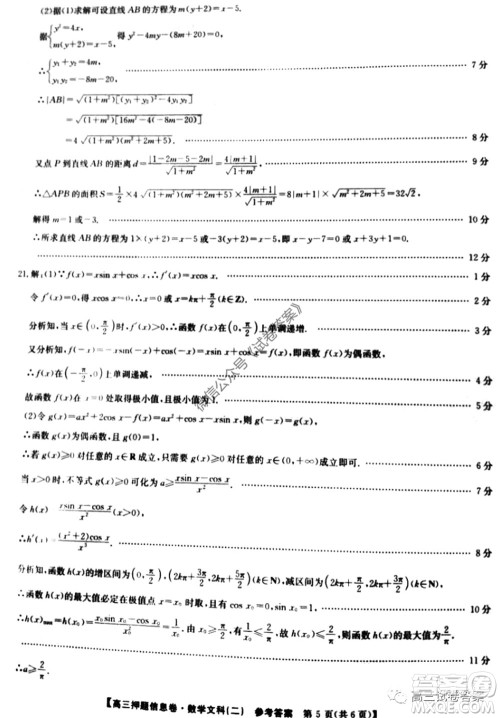 (2)据(1)求解可设直线 AB 的方程为 m(y+2)=x-5.
据{y²=4x, m(y+2)=x-5, 得 y²-4my-8m-20=0.
∴{y₁+y₂=4m, y₁y₂=-8m-20. 7分
∴|AB|=√((1+m²)[(y₁+y₂)²-4y₁y₂])
=√((1+m²)[16m²-4(-8m-20)])
=4√((1+m²)(m²+2m+5)). 8分
又点 P 到直线 AB 的距离 d=|1-2m-5-2m|/√(1+m²)=4|m+1|/√(1+m²), 9分
∴△APB 的面积 S=1/2×4√((1+m²)(m²+2m+5))×4|m+1|/√(1+m²)=8|m+1|×√(m²+2m+5)=32√2.
解得 m=1 或-3. 10分
∴所求直线 AB 的方程为 1×(y+2)=x-5 或-3(y+2)=x-5,即 x-y-7=0 或 x+3y+1=0. 12分
21.解:(1)∵f(x)=xsin x+cos x,∴f′(x)=xcos x. 1分
令 f′(x)=0,得 xcos x=0,∴x=0 或 x=kπ+π/2(k∈Z). 2分
分析知,当 x∈(0,π/2)时,f′(x)>0,∴函数 f(x)在(0,π/2)上单调递增. 3分
又分析知,f(-x)=-xsin(-x)+cos(-x)=xsin x+cos x=f(x),即函数 f(x)为偶函数,
∴函数 f(x)在(-π/2,0)上单调递减. 4分
故函数 f(x)在 x=0 处取得极小值,且极小值为 f(0)=1. 5分
(2)令 g(x)=ax²+2cos x-f(x)=ax²+cos x-xsin x,则 g(-x)=g(x),
∴函数 g(x)为偶函数,且 g(0)=1,
∴若 g(x)≥0 对任意的 x∈R 成立,只需 g(x)≥0 对任意的 x∈(0,+∞)成立即可. 6分
∴当 x>0 时,不等式 g(x)≥0 可化为 a≥(xsin x-cos x)/x². 7分
令 h(x)=(xsin x-cos x)/x²,
∴h′(x)=(x²+2)cos x/x³. 8分
分析知,函数 h(x)的增区间为(0,π/2),(2kπ+3π/2,2kπ+5π/2)(k∈N),减区间为(2kπ+π/2,2kπ+3π/2)(k∈N),
∴函数 h(x)的最大值必定在极大值点 x=x₀ 时取到,且有 cos x₀=0,sin x₀=1, 10分
11分
∴a≥2/π.
【高三押题信息卷·数学文科(二) 参考答案 第5页(共6页)】
微信公众号《试卷答案》
高三试卷答案